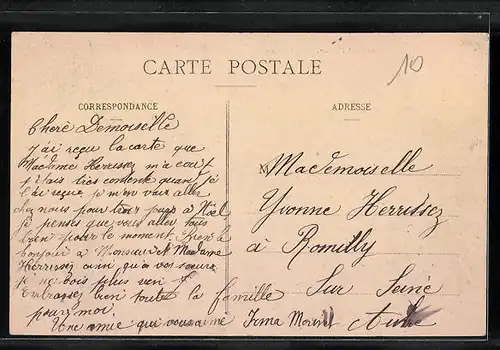 10
CARTE POSTALE
CORRESPONDANCE
ADRESSE
Cherè Demoiselle
j'ai reçu la carte que
Madame Herrissez m'a
j'étais très contente quand je
l'ai reçue je m'en vais aller
chez nous pour trois jours à Nöel
je penses que vous allez tous
bien pour le moment Bien le
bonjour à Monsieur et Madame
Herrissez ainsi qu'a vos sœurs
je ne vois plus rien
Embrassez bien toute la famille
pour moi
Une amie que vous aime Irma
Mademoiselle
Yvonne Herrissez
à Romilly
Sur Seine
Aube